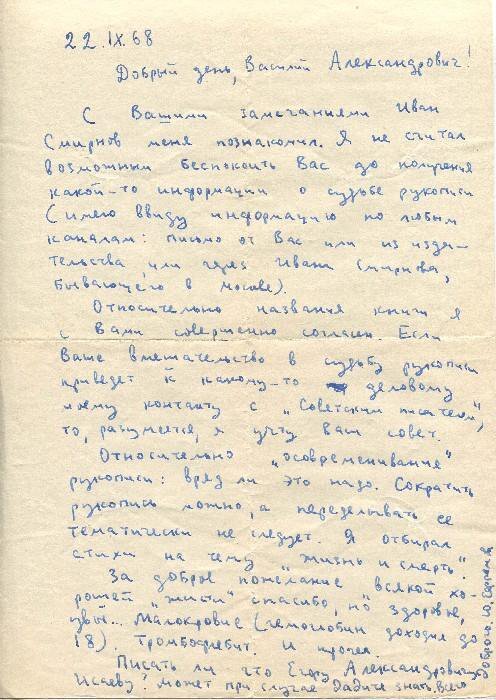 22.IX.68
Добрый день, Василий Александрович!
С Вашими замечаниями Иван
Смирнов меня познакомил. Я не считал
возможным беспокоить Вас до получения
какой-то информации о судьбе рукописи
(имею ввиду информацию по любым
каналам: письмо от Вас или из изда-
тельства, или через Ивана Смирнова,
бывающего в Москве).
Относительно названия книги я
с Вами совершенно согласен. Если
Ваше вмешательство в судьбу рукописи
приведет к какому-то деловому
моему контакту с „Советским писателем",
то, разумеется, я учту Ваш совет.
Относительно „осовременивания"
рукописи: вряд ли это надо. Сократить
рукопись можно, а переделывать ее
тематически не следует. Я отбирал
стихи на тему „жизнь и смерть".
За доброе пожелание „всякой хо-
рошей „жисти" спасибо, но здоровье,
увы!.. Малокровие (гемоглобин доходил до
18). Тромбофлебит. И прочее.
Писать ли что Егору Александровичу
Исаеву? Может при случае дадите знать. Всего
доброго. Ю.